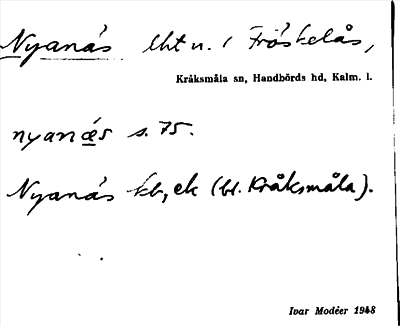 Nyanäs lht u. i Fröskelås,
Kråksmåla sn, Handbörds hd, Kalm. l.
nyanæs s. 75.
Nyanäs kb, ek (bl. Kråksmåla).
Ivar Modéer 1948